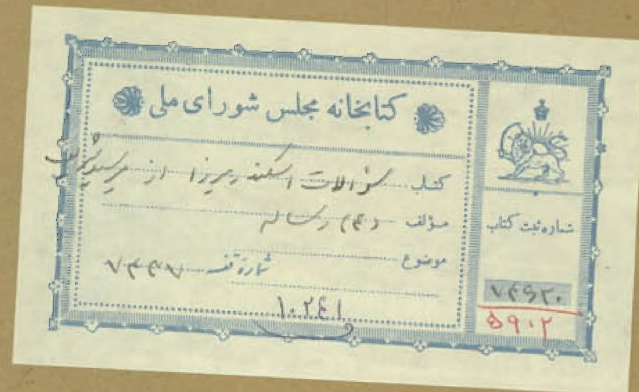 کتابخانه مجلس شورای ملی
کتاب سؤالات اسکندر میرزا از
مؤلف (۴) رساله
موضوع شماره قفسه ۷۴۴۷
۱۰۲۴۱
شماره ثبت کتاب
۵۹۰۲